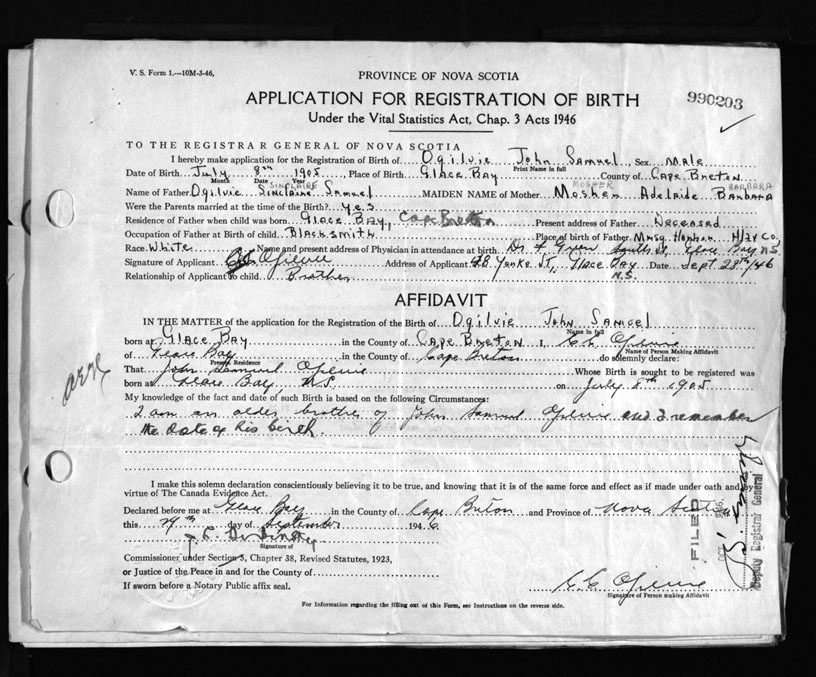 V. S. Form 1.—10M-3-46.
PROVINCE OF NOVA SCOTIA
APPLICATION FOR REGISTRATION OF BIRTH
990203
Under the Vital Statistics Act, Chap. 3 Acts 1946
TO THE REGISTRAR GENERAL OF NOVA SCOTIA
I hereby make application for the Registration of Birth of Ogilvie John Samuel, Sex Male
Print Name in full
Date of Birth July 8th 1905, Place of Birth Glace Bay County of Cape Breton
Month Date Year
SINCLAIRE MOSHER BARBARA
Name of Father Ogilvie Sinclaire Samuel MAIDEN NAME of Mother Mosher Adelaide Barbara
Were the Parents married at the time of the Birth? yes
Residence of Father when child was born Glace Bay, Cape Breton Present address of Father Deceased
Occupation of Father at Birth of child Blacksmith Place of birth of Father Hants Co.
Race White Name and present address of Physician in attendance at birth Dr. Green South St. Glace Bay N.S.
Signature of Applicant C C Ogilvie Address of Applicant Yorke St, Glace Bay Date Sept 28th/46
N.S.
Relationship of Applicant to child Brother
AFFIDAVIT
IN THE MATTER of the application for the Registration of the Birth of Ogilvie John Samuel
Name in full
born at Glace Bay in the County of Cape Breton I, C C Ogilvie
Name of Person Making Affidavit
of Glace Bay in the County of Cape Breton do solemnly declare:
Present Residence
That John Samuel Ogilvie Whose Birth is sought to be registered was
born at Glace Bay N.S. on July 8th 1905
My knowledge of the fact and date of such Birth is based on the following Circumstances:
I am an older brother of John Samuel Ogilvie and I remember
the date of his birth.
I make this solemn declaration conscientiously believing it to be true, and knowing that it is of the same force and effect as if made under oath and by
virtue of The Canada Evidence Act.
Declared before me at Glace Bay in the County of Cape Breton and Province of Nova Scotia
this 29th day of September 1946
Signature of
Commissioner under Section 3, Chapter 38, Revised Statutes, 1923,
or Justice of the Peace in and for the County of
If sworn before a Notary Public affix seal.
C. C. Ogilvie
Signature of Person making Affidavit
For Information regarding the filling out of this Form, see Instructions on the reverse side.
FILED
Deputy Registrar General